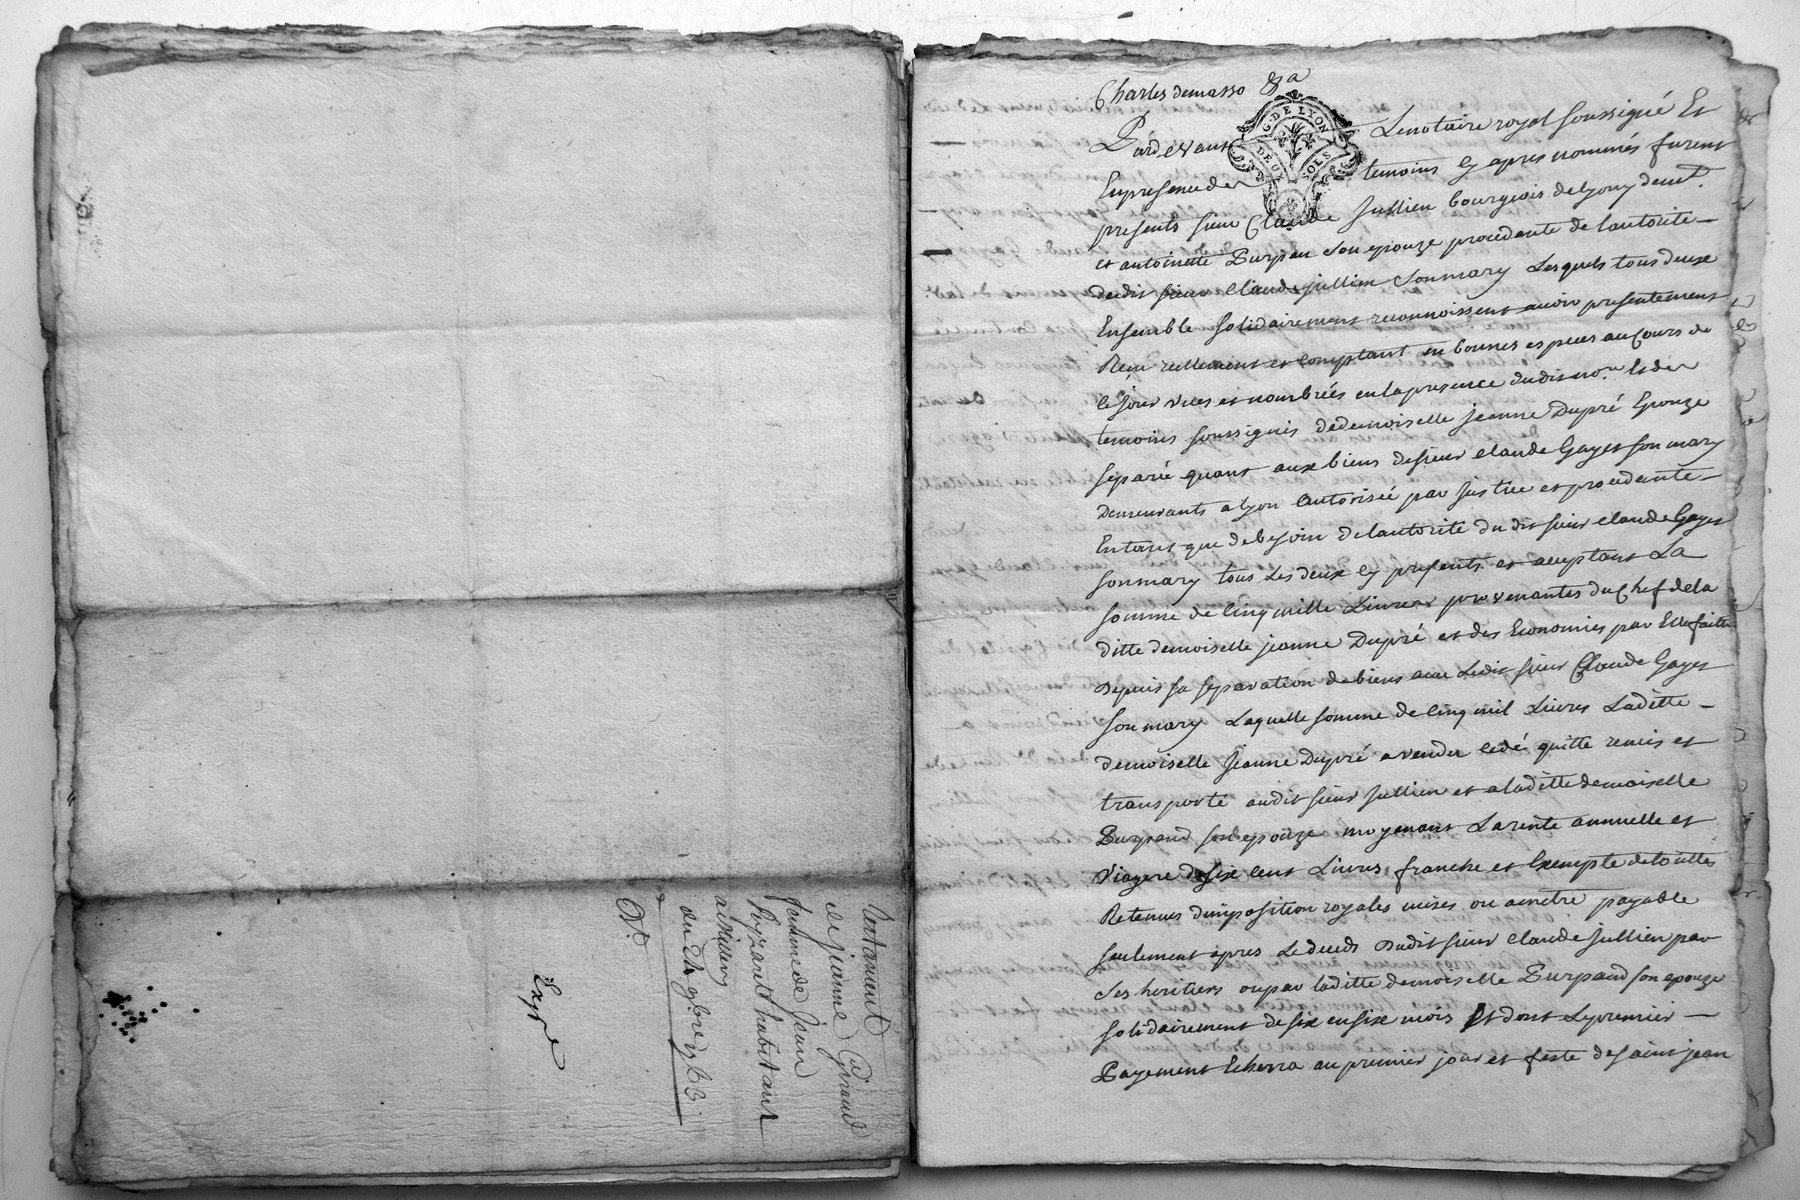 Testament
de jeanne Giraud
femme de jean
habitant
du 24 9bre
Exp.e
Charles demasso
G. DE LYON
DEUX SOLS
Pardevant Lenotaire royal soussigné Et
Enpresence des temoins cy apres nommés furent
presents sieur Claude Jullien bourgeois delyon y demt.
et antoinette Durpan son epouze procedante de lautorité
dudit sieur Claude jullien sonmary Lesquels tous deux
Ensemble solidairement reconnoissent avoir presentement
Reçu reellement et comptant en bonnes especes au Cours de
ce jour vues et nombrées enlapresence dudit no.re et des
temoins soussignés de demoiselle jeanne Dupré Epouze
separée quant aux biens de sieur claude Gayet son mary
demeurants a lyon autorisée par justice et procedante
Entant que de besoin de lautorité du dit sieur claude Gayet
sonmary tous Les deux cy presents et acceptant La
somme de Cinq mille Livres provenantes du Chef de la
ditte demoiselle jeanne Dupré et des Economies par Elle faittes
depuis sa separation de biens avec Ledit sieur Claude Gayet
son mary Laquelle somme de Cinq mil Livres Laditte
demoiselle Jeanne Dupré a vendu cedé quitté remis et
transporté audit sieur Jullien et a laditte demoiselle
Durpand son epouze moyenant La rente annuelle et
viagere de six cent Livres franche et Exempte de touttes
Retenues dimposition royales mises ou a mettre payable
seulement apres Le deceds dudit sieur claude Jullien par
ses heritiers ou par laditte demoiselle Durpand son epouze
solidairement de six en six mois Et dont Le premier
Payement Echerra au premier jour et feste de saint jean